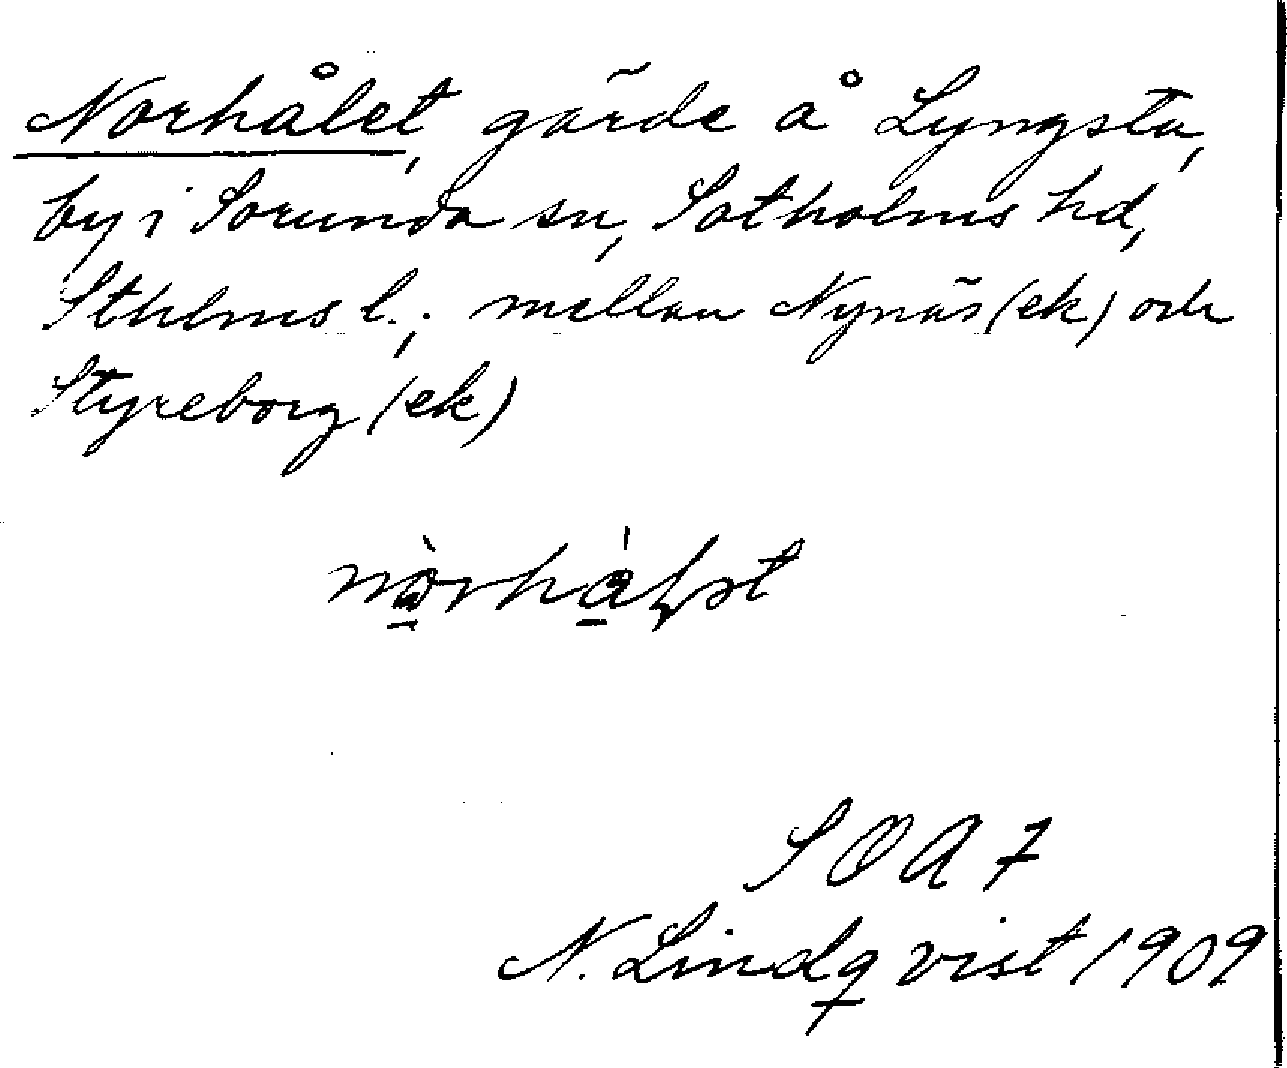 Norhålet, gärde å Lyngsta,
by i Sorunda sn, Sotholms hd,
Sthlms l.; mellan Nynäs (ek) och
Styreborg (ek)
SOA 7
N. Lindqvist 1909